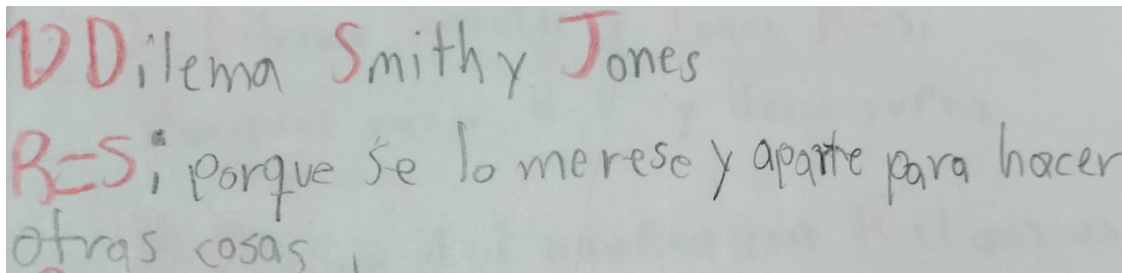 1) Dilema Smith y Jones
R=Si, porque se lo merese y aparte para hacer
otras cosas.